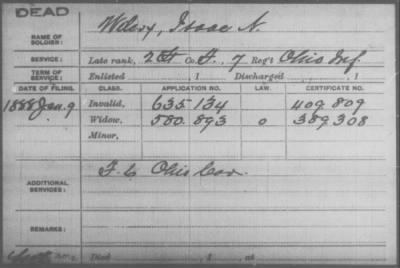 DEAD
NAME OF SOLDIER: Wilcox, Isaac N.
SERVICE: Late rank, 2 Lt Co. F, 7 Reg't Ohio Inf.
TERM OF SERVICE: Enlisted , 1 Discharged , 1
DATE OF FILING. CLASS. APPLICATION NO. LAW. CERTIFICATE NO.
1888 Jan. 9 Invalid, 635.134 409.809
Widow, 580.893 0 389308
Minor,
ADDITIONAL SERVICES: F. 6 Ohio Cav.
REMARKS:
Died , 1 , at